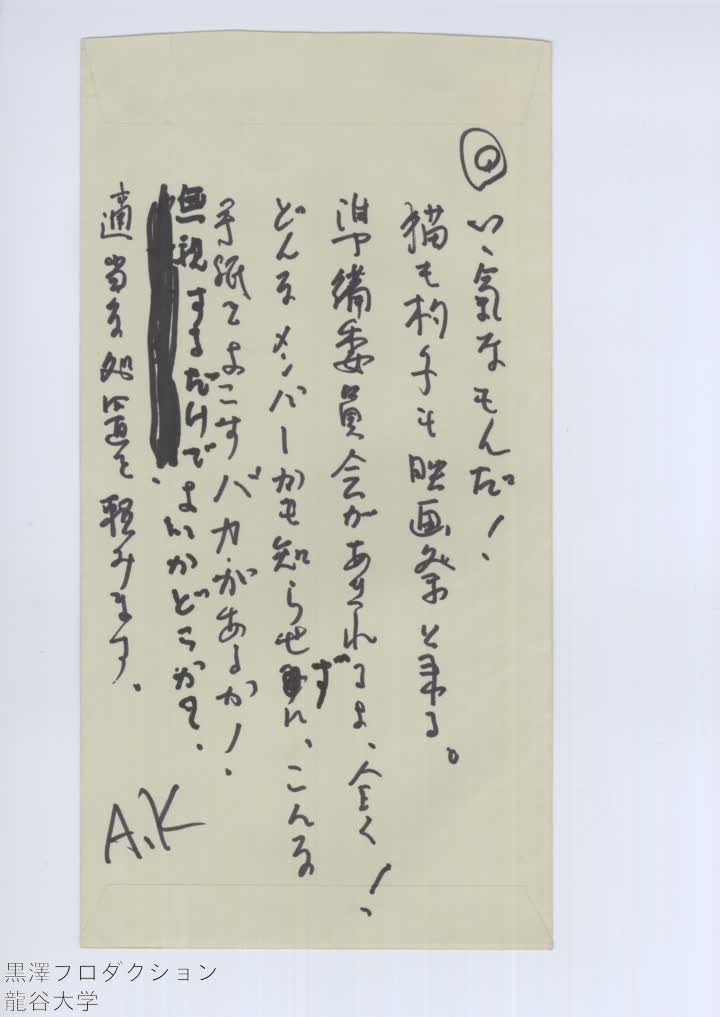 ◎
いゝ気なもんだ!
猫も杓子も映画祭と来る。
準備委員会があきれるよ、全く!
どんなメンバーかも知らせずに、こんな
手紙でよこすバカがあるか!
無視するだけでよいかどうか?
適当な処置を頼みます。
A.K
黒澤プロダクション
龍谷大学